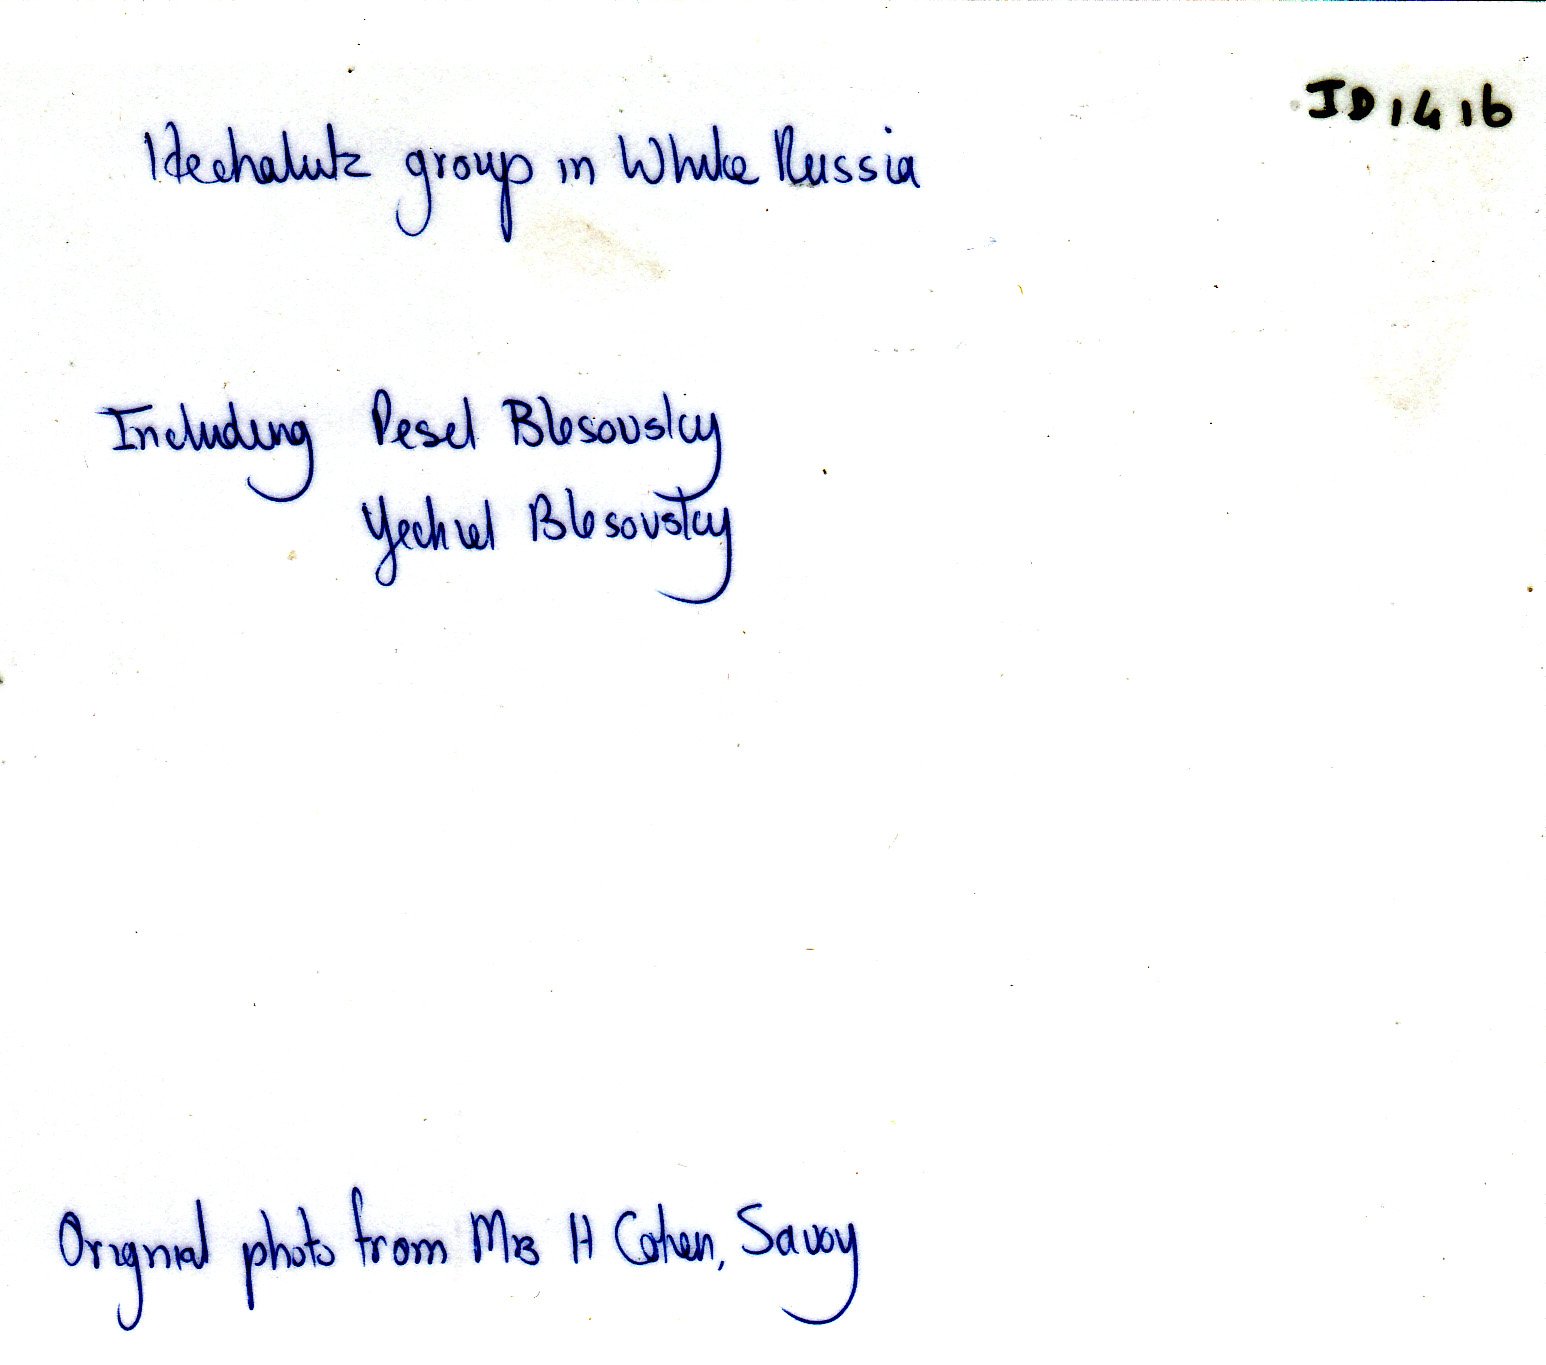 JD1416
Hechalutz group in White Russia
Including Pesel Blesovsky
Yechiel Blesovsky
Original photo from Mrs H Cohen, Savoy